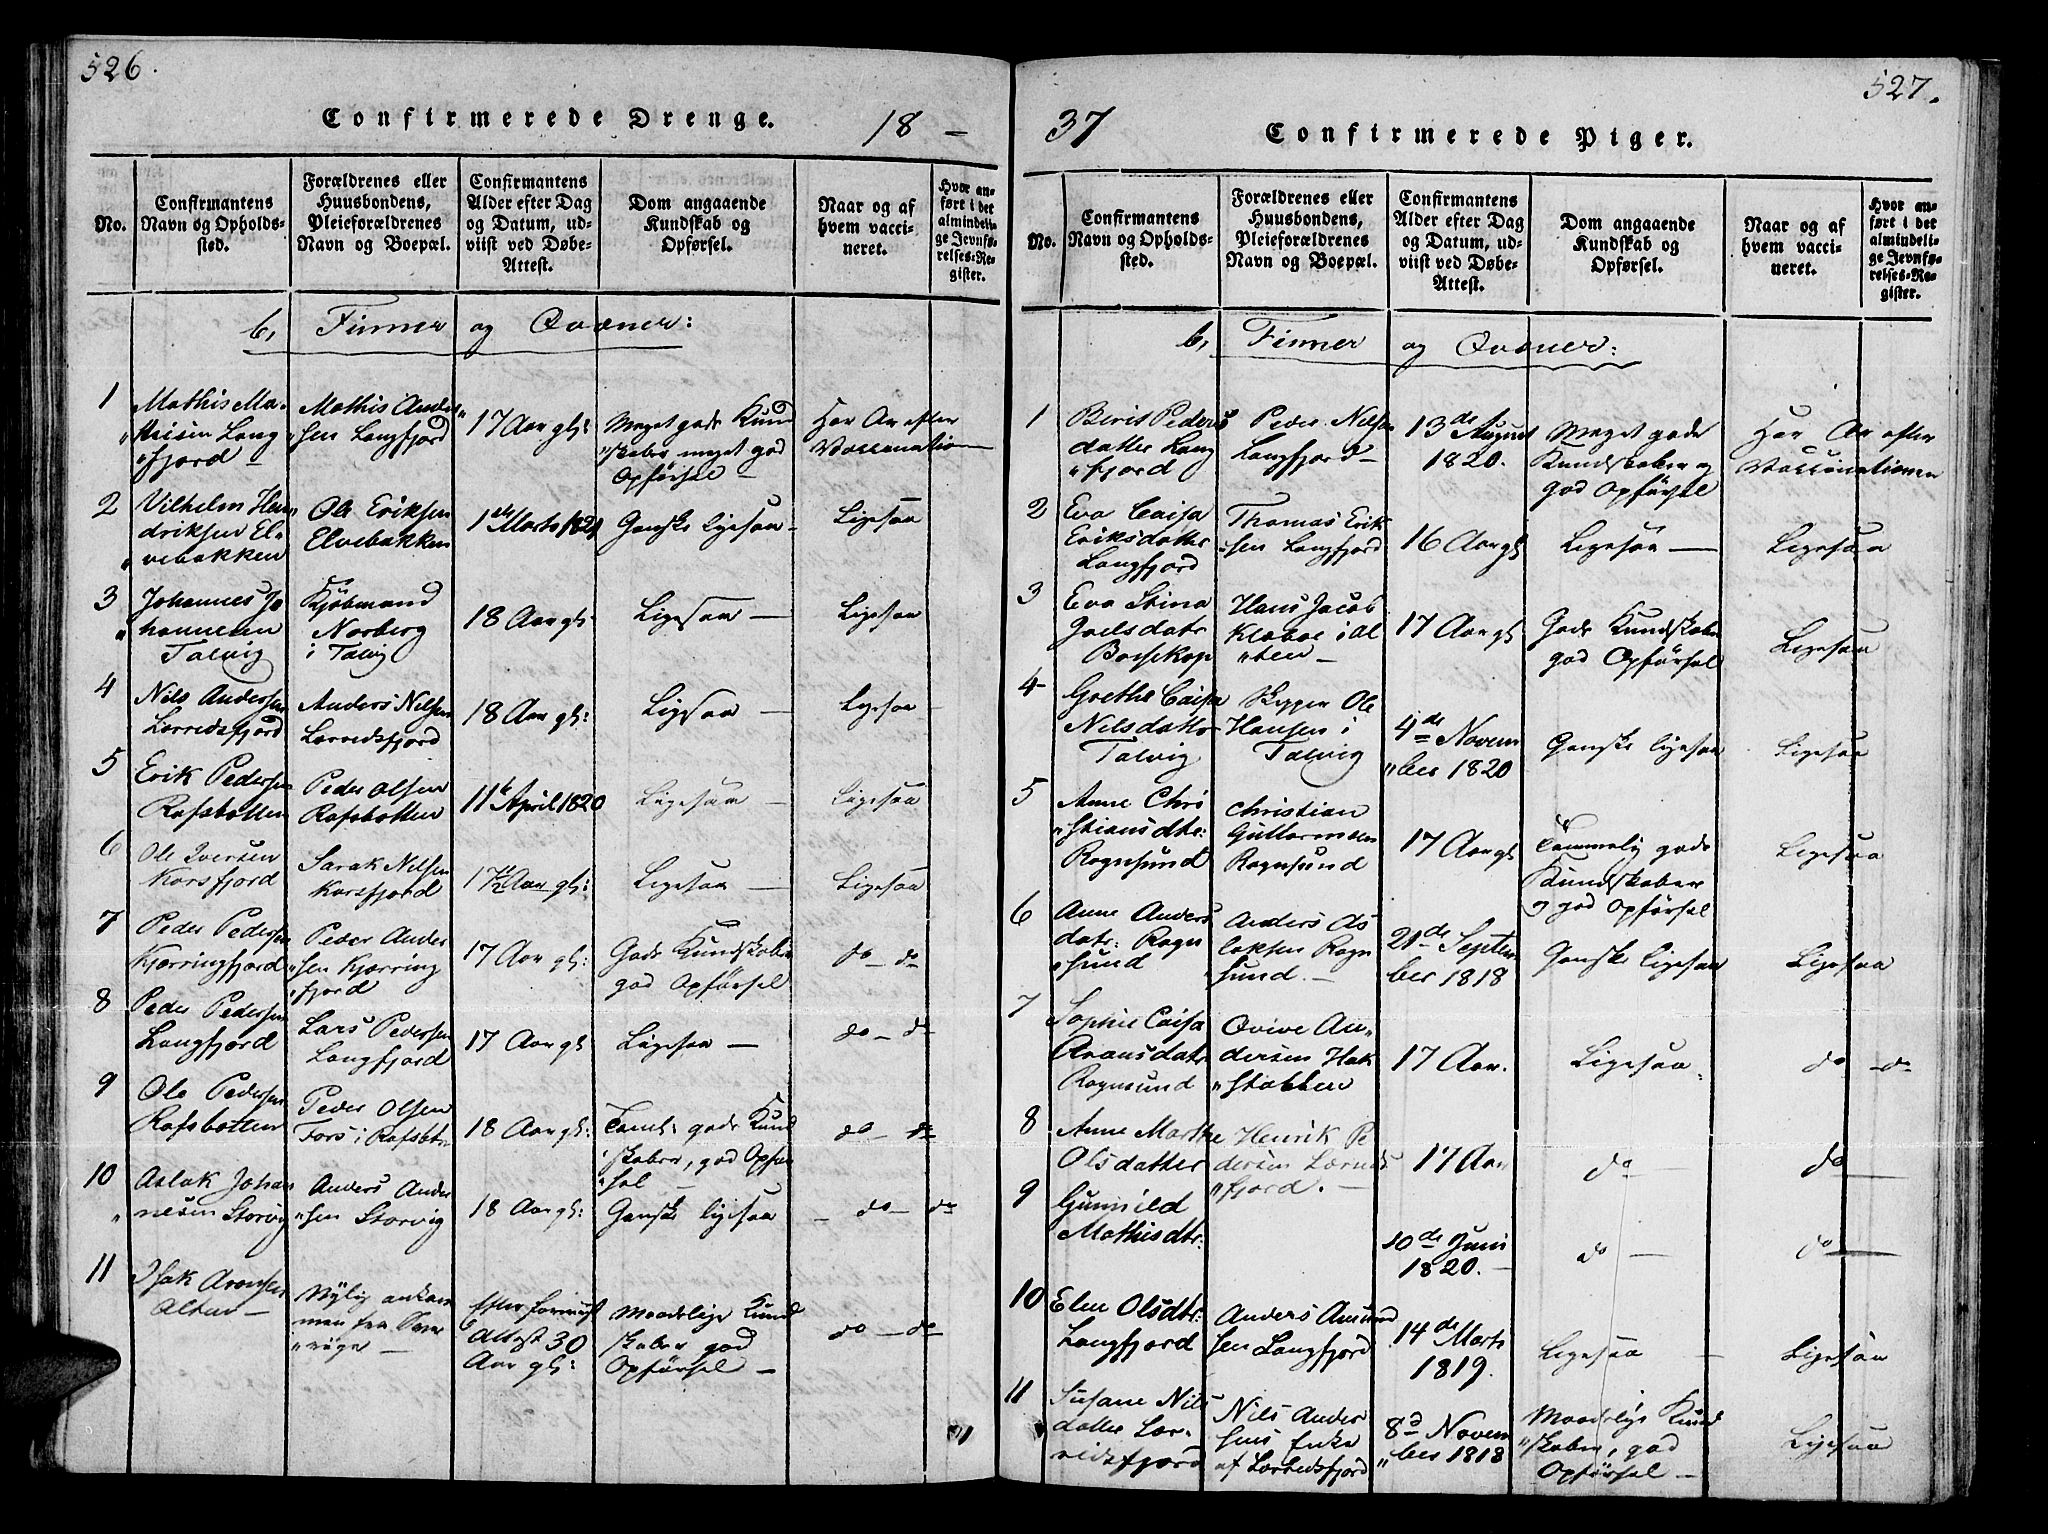 526.
Confirmerede Drenge.
18 –
No.
Confirmantens
Navn og Opholds-
sted.
Forældrenes eller
Huusbondens,
Pleieforældrenes
Navn og Boepæl.
Confirmantens
Alder efter Dag
og Datum, ud-
viist ved Døbe-
Attest.
Dom angaaende
Kundskab og
Opførsel.
Naar og af
hvem vacci-
neret.
Hvor an-
ført i det
almindeli-
ge Jevnfø-
relses-Re-
gister.
b, Finner og Qvæner:
1
Mathis Ma-
"thisen Lang
"fjord –
Mathis Ander
"sen Langfjord
17 Aar gl:
Meget gode Kund
"skaber meget god
Opførsel –
Har Ar efter
Vaccination
2
Vilhelm Hen
driksen El-
"vebakken
Ole Eriksen
Elvebakken
1de Marts 1821
Ganske ligesaa –
Ligesaa
3
Johannes Jo
"hannesen
Talvig
Kjøbmand
Norberg
i Talvig
18 Aar gl:
Ligesaa –
Ligesaa
4
Nils Andersen
Lerredsfjord
Anders Nilsen
Lerredsfjord
18 Aar gl:
Ligesaa –
Ligesaa –
5
Erik Pedersen
Rafsbotten
Peder Olsen
Rafsbotten
11te April 1820
Ligesaa –
Ligesaa
6
Ole Iversen
Korsfjord
Sarak Nilsen
Korsfjord
17½ Aar gl:
Ligesaa –
Ligesaa
7
Peder Pedersen
Kjerringfjord
Peder Ander
"sen Kjerring
"fjord
17 Aar gl:
Gode Kundskaber
god Opførsel
do – do
8
Peder Pedersen
Langfjord
Lars Pedersen
Langfjord
17 Aar gl
Ligesaa –
do – do
9
Ole Pedersen
Rafsbotten
Peder Olsen
Fors i Rafsbt:
18 Aar gl:
Taml: gode Kund
"skaber, god Opfør
"sel –
do – do
10
Aslak Johan
"nesen Storvig
Anders Ander
"sen Storvig
18 Aar gl:
Ganske ligesaa
– do – do
11
Isak Aronsen
Alten –
Nylig ankom
men fra Sver
"rige –
Efter foreviist
Attest 30
Aar gl:
Maadelige Kund
skaber god
Opførsel –
do – do
527.
37
Confirmerede Piger.
No.
Confirmantens
Navn og Opholds-
sted.
Forældrenes eller
Huusbondens,
Pleieforældrenes
Navn og Boepæl.
Confirmantens
Alder efter Dag
og Datum, ud-
viist ved Døbe-
Attest.
Dom angaaende
Kundskab og
Opførsel.
Naar og af
hvem vacci-
neret.
Hvor an-
ført i det
almindeli-
ge Jevnfø-
relses-Re-
gister.
b, Finner og Qvæner:
1
Berit Peders
datter Lang
"fjord
Peder Nilsen
Langfjord –
13de August
1820.
Meget gode
Kundskaber og
god Opførsel
Har Ar efter
Vaccinationen
2
Eva Caisa
Eriksdatter
Langfjord
Thomas Erik
"sen Langfjord
16 Aar gl
Ligesaa –
Ligesaa
3
Eva Stina
Joelsdatr
Bosekop
Hans Jacob
Klæboe i Al
"ten –
17 Aar gl
Gode Kundskaber
god Opførsel
Ligesaa
4
Grethe Caisa
Nilsdatter
Talvig
Skipper Ole
Hansen i
Talvig
4de Novem
"ber 1820
Ganske ligesaa
Ligesaa
5
Anne Chri
"stiansdtr:
Rognsund
Christian
Guttormsen
Rognsund
17 Aar gl
Temmelig gode
Kundskaber
og god Opførsel
Ligesaa
6
Anne Anders
datr: Rogn
"sund
Anders As
laksen Rogn
sund. –
21de Septem
ber 1818
Ganske ligesaa
Ligesaa
7
Sophie Caisa
Aronsdatr
Rognsund
Qvive An"
dersen Hak
"stabben
17 Aar.
Ligesaa
do – do
8
Anne Marthe
Olsdatter
Henrik Pe
dersen Lerreds
"fjord. –
17 Aar
do –
do –
9
Gunnild
Mathisdtr:
10de Juni
1820. –
do –
do –
10
Elen Olsdtr:
Langfjord
Anders Amund
sen Langfjord
14de Marts
1819.
Ligesaa –
Ligesaa
11
Susane Nils
datter Ler-
redsfjord
Nils Ander
sens Enke
af Lerredsfjord
8d Novem
"ber 1818
Maadelige Kund
"skaber, god
Opførsel –
Ligesaa